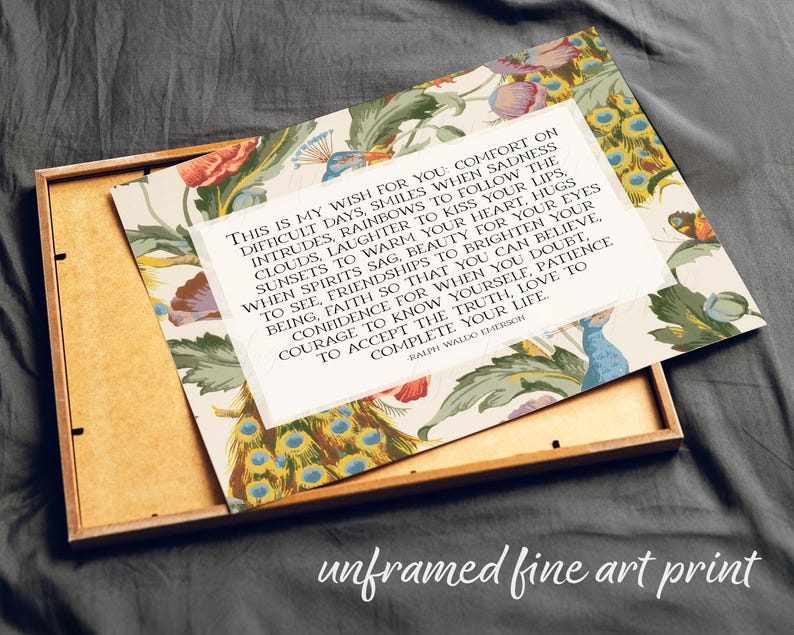 This is my wish for you: comfort on
difficult days, smiles when sadness
intrudes, rainbows to follow the
clouds, laughter to kiss your lips,
sunsets to warm your heart, hugs
when spirits sag, beauty for your eyes
to see, friendships to brighten your
being, faith so that you can believe,
confidence for when you doubt,
courage to know yourself, patience
to accept the truth, love to
complete your life.
-Ralph Waldo Emerson
unframed fine art print